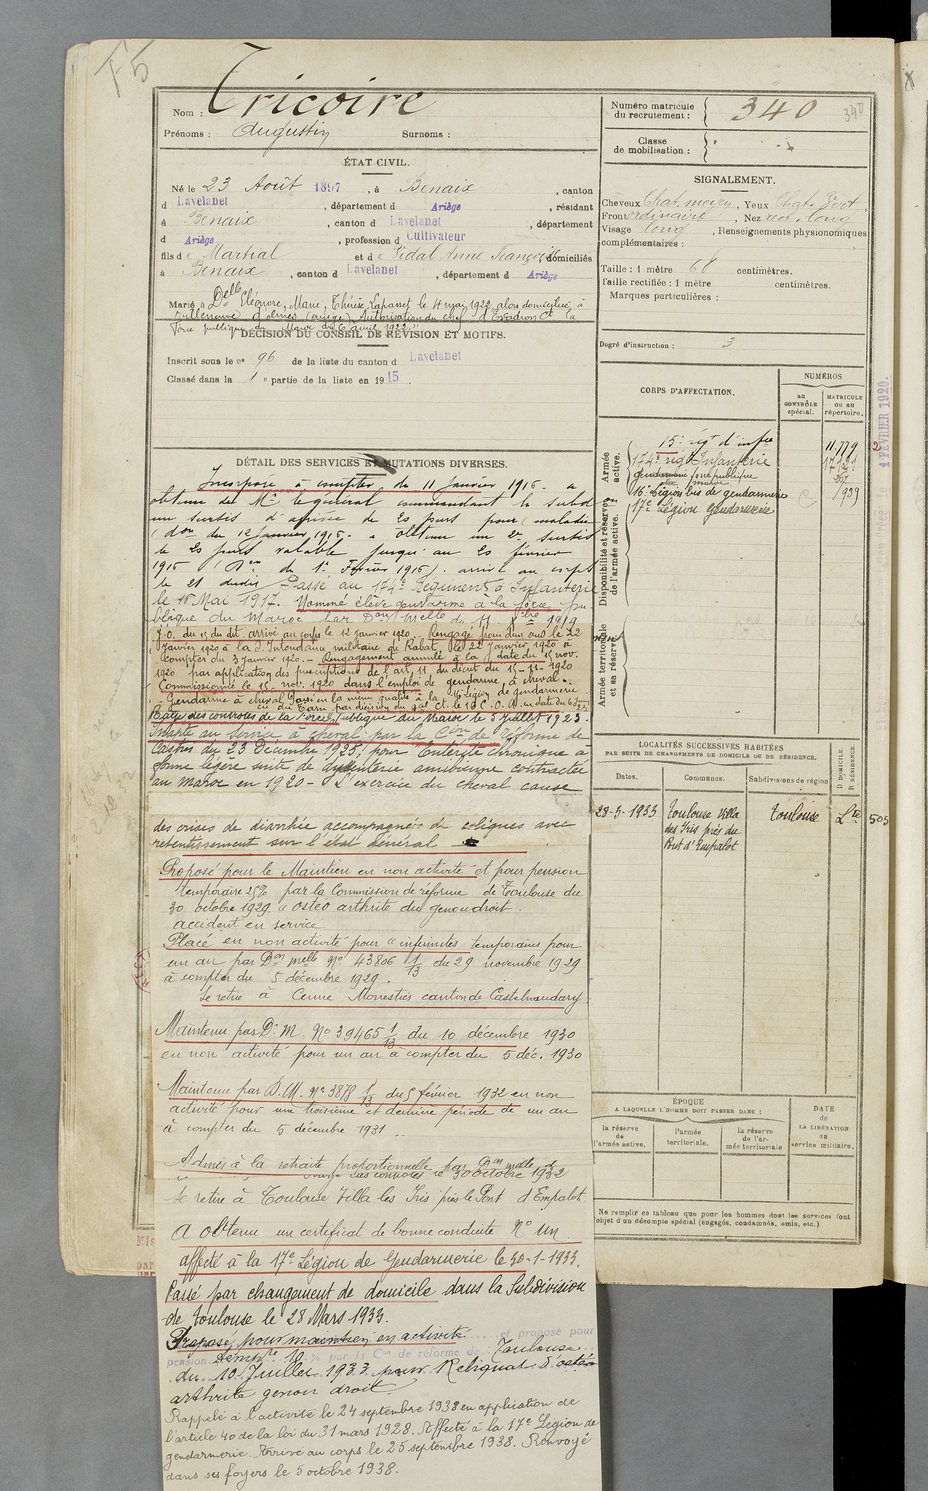 F5
Nom : Tricoire
Prénoms : Augustin Surnoms :
ÉTAT CIVIL.
Né le 23 Août 1897, à Benaix, canton
d Lavelanet, département d Ariège, résidant
à Benaix, canton d Lavelanet, département
d Ariège, profession d Cultivateur
fils de Martial et de Vidal Anne Françoise domiciliés
à Benaix, canton d Lavelanet, département d Ariège
Marié à Delle Eléonore, Marie, Thérèse Lapasset le 4 mai 1922, domiciliée à
Villeneuve d'Olmes (Ariège) Autorisation du chef d'Escadron Ct la
Force publique du Maroc du 6 avril 1922.
DÉCISION DU CONSEIL DE RÉVISION ET MOTIFS.
Inscrit sous le n° 96 de la liste du canton d Lavelanet
Classé dans la 1e partie de la liste en 1915.
DÉTAIL DES SERVICES ET MUTATIONS DIVERSES.
Incorporé à compter du 11 Janvier 1916. a
obtenu de Mr le général commandant la subd
un sursis d'arrivée de 20 jours pour maladie
(don du 12 Janvier 1916. a obtenu un 2e sursis
de 20 jours valable jusqu'au 20 février
1916 (Don du 1er Février 1916). arrivé au corps
le 21 dudit Passé au 174e Régiment d'Infanterie
le 18 Mai 1917. Nommé élève gendarme à la force pu
blique du Maroc par Don Melle du 11 9bre 1919
J.O. du 15 du dit. arrivé au corps le 12 Janvier 1920. Rengagé pour deux ans le 22
Janvier 1920 à la S. Intendance militaire de Rabat, le 22 Janvier 1920 à
compter du 3 Janvier 1920. - Rengagement annulé à la date du 15 nov.
1920 par application des prescriptions de l'art. 11 du décret du 15-11-1920
Commissionné le 15 nov. 1920 dans l'emploi de gendarme, à cheval.
Gendarme à cheval Passé en la même qualité à la 16e légion de gendarmerie
Cie du Tarn par décision du gal Ct. le 1er C.O.M. en date du
Rayé des contrôles de la Force Publique du Maroc le 3 Juillet 1923.
Inapte au service à cheval par la Con de réforme de
Castres du 23 Décembre 1925, pour Entérite chronique à
forme légère suite de dysenterie amibienne contractée
au Maroc en 1920 - L'exercice du cheval cause
des crises de diarrhée accompagnées de coliques avec
retentissement sur l'état général
Proposé pour le Maintien en non activité et pour pension
temporaire 25% par la Commission de réforme de Toulouse du
30 octobre 1929 "ostéo arthrite du genou droit.
accident en service
Placé en non activité pour "infirmités temporaires pour
un an par Don melle N° 43806 1/13 du 29 novembre 1929
à compter du 5 décembre 1929.
Se retire à Cenne Monestiès canton de Castelnaudary
Maintenu par D. M. N° 39465 1/13 du 10 décembre 1930
en non activité pour un an à compter du 5 déc. 1930
Maintenu par D.M. N° 3878 1/13 du 5 février 1932 en non
activité pour une troisième et dernière période de un an
à compter du 5 décembre 1931.
Admis à la retraite proportionnelle par Don melle
Rayé des contrôles le 30 octobre 1932
Se retire à Toulouse Villa les Iris près le Pont d'Empalot.
A obtenu un certificat de bonne conduite N° un
affecté à la 17e Légion de Gendarmerie le 30-1-1933.
Passé par changement de domicile dans la Subdivision
de Toulouse le 28 Mars 1933.
Proposé pour maintien en activité et proposé pour
pension tempre 10 % par la Con de réforme de Toulouse
du 10 Juillet 1933 pour Reliquat d'ostéo
arthrite genou droit.
Rappelé à l'activité le 24 septembre 1938 en application de
l'article 40 de la loi du 31 mars 1928. Affecté à la 17e Légion de
gendarmerie. Arrivé au corps le 25 septembre 1938. Renvoyé
dans ses foyers le 5 octobre 1938.
Numéro matricule
du recrutement : 340
340
Classe
de mobilisation :
SIGNALEMENT.
Cheveux Chat. moyen, Yeux Chat. Vert,
Front ordinaire, Nez rect. long
Visage long, Renseignements physionomiques
complémentaires :
Taille : 1 mètre 68 centimètres.
Taille rectifiée : 1 mètre centimètres.
Marques particulières :
Degré d'instruction : 3
CORPS D'AFFECTATION.
NUMÉROS
AU CONTRÔLE spécial.
MATRICULE ou au répertoire.
Armée active.
Disponibilité et réserve de l'armée active.
Armée territoriale et sa réserve
15e régt d'infie 11.779
174e régt Infanterie
Gendarmerie force publique du Maroc 267
16e Légion bis de gendarmerie 1939
17e Légion Gendarmerie
4 FÉVRIER 1920.
LOCALITÉS SUCCESSIVES HABITÉES
PAR SUITE DE CHANGEMENTS DE DOMICILE OU DE RÉSIDENCE.
Dates. Communes. Subdivisions de région D DOMICILE R RÉSIDENCE
28-3-1933 Toulouse Villa Toulouse 505
des Iris près du
Pont d'Empalot
ÉPOQUE
A LAQUELLE L'HOMME DOIT PASSER DANS :
DATE
de
LA LIBÉRATION
du
service militaire.
la réserve de l'armée active.
l'armée territoriale.
la réserve de l'armée territoriale
Ne remplir ce tableau que pour les hommes dont les services font
objet d'un décompte spécial (engagés, condamnés, omis, etc.)